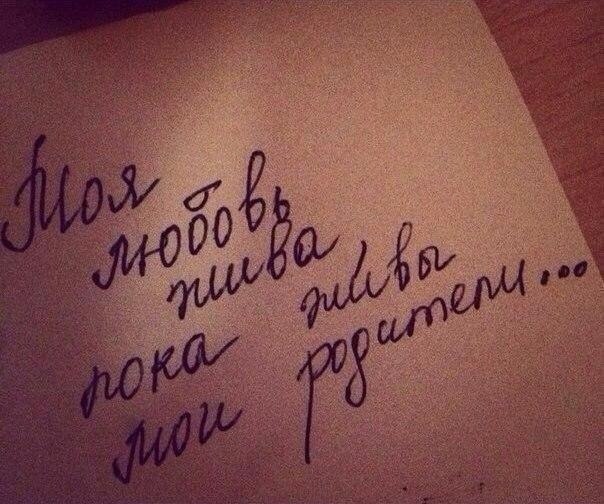 Моя
любовь
жива,
пока живы
мои родители...